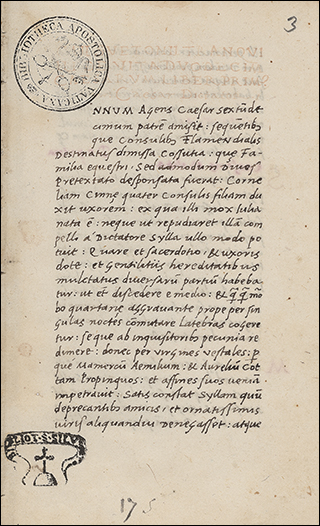 3
BIBLIOTHECA APOSTOLICA VATICANA
NNUM Agens Caesar sextũdẽ
cimum patrẽ amisit: sequẽtibꝰ
que Consulibꝰ Flamen dialis
Destinatus dimissa Cossutia: que Fa
milia equestri, Sed admodum Dives
pretextato desponsata fuerat: Corne
liam Cinne quater Consulis filiam du
xit uxorem: ex qua illa mox Iulia
nata ẽ: neque ut repudiaret illã com
pelli a Dictatore Sylla ullo modo po
tuit: Quare et sacerdotio, & uxoris
dote: et Gentilitiis hereditatibus
mulctatus diversarũ partiũ habeba
tur: ut et discedere e medio: & 
bo quartane aggravante prope per sin
gulas noctes cõmutare Latebras cogere
tur: seque ab inquisitoribꝰ pecunia re
dimeret: donec per virgines vestales: p
que Mamercũ Aemilium: & Aurelium Cot
tam Propinquos: et affines suos veniã
impetravit: Satis constat Syllam quũ
deprecantibus amicis, et ornatissimis
viris aliquandiu Denegasset: atque
BLIOT. S. SILV
17 s